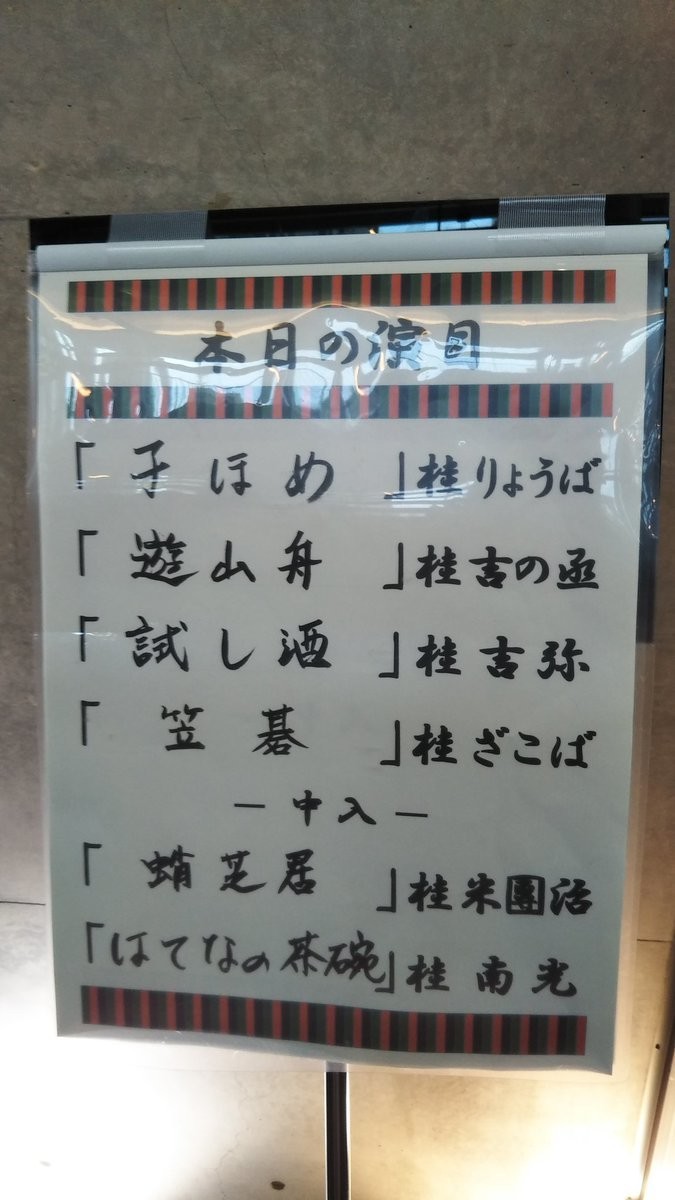 本日の演目
「子ほめ」桂りょうば
「遊山舟」桂吉の丞
「試し酒」桂吉弥
「笠碁」桂ざこば
－中入－
「蛸芝居」桂米團治
「はてなの茶碗」桂南光